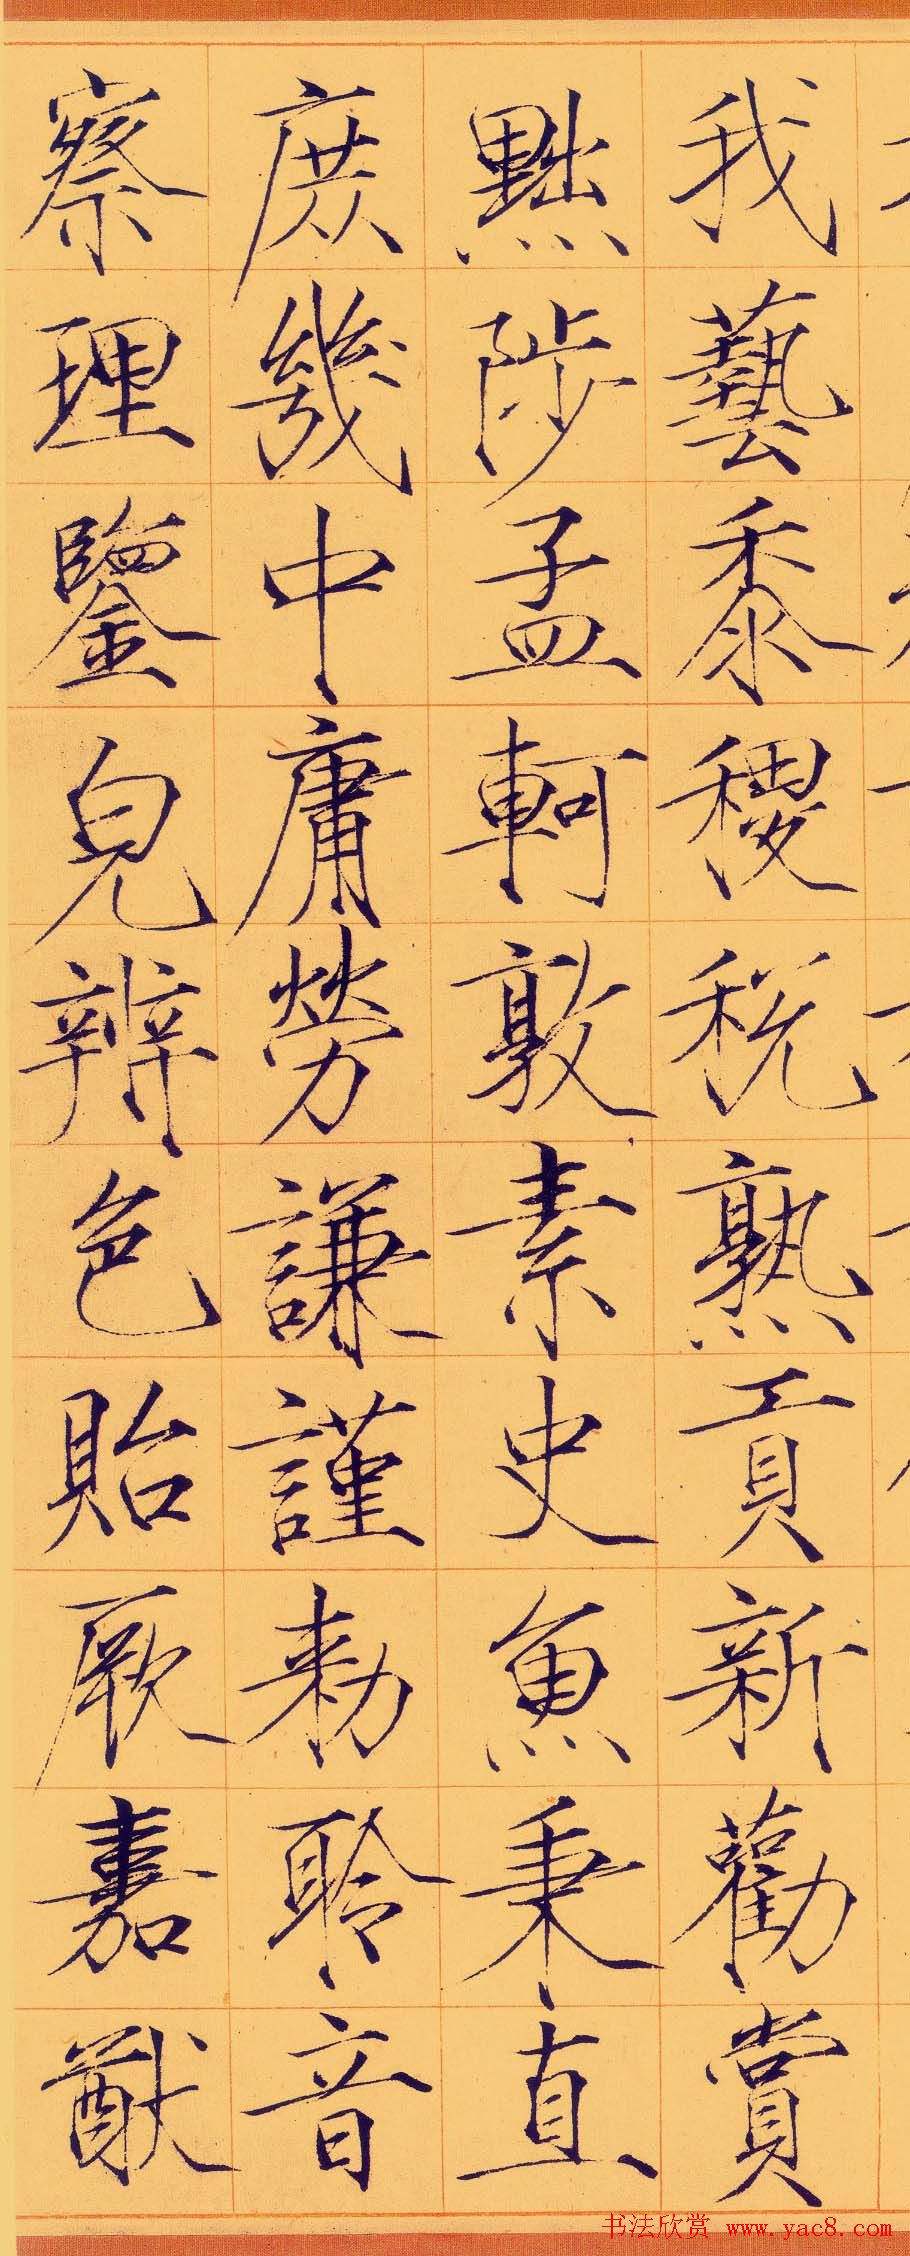 我藝黍稷稅熟貢新勸賞
黜陟孟軻敦素史魚秉直
庶幾中庸勞謙謹勑聆音
察理鑒皃辨色貽厥嘉猷
书法欣赏 www.yac8.com